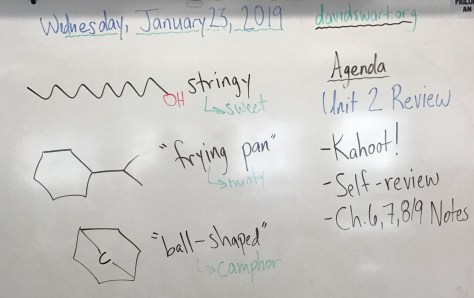 Wednesday, January 23, 2019
davidswart.org
OH
stringy
↳sweet
"frying pan"
↳minty
C
"ball-shaped"
↳camphor
Agenda
Unit 2 Review
-Kahoot!
-Self-review
-Ch.6,7,8/9 Notes